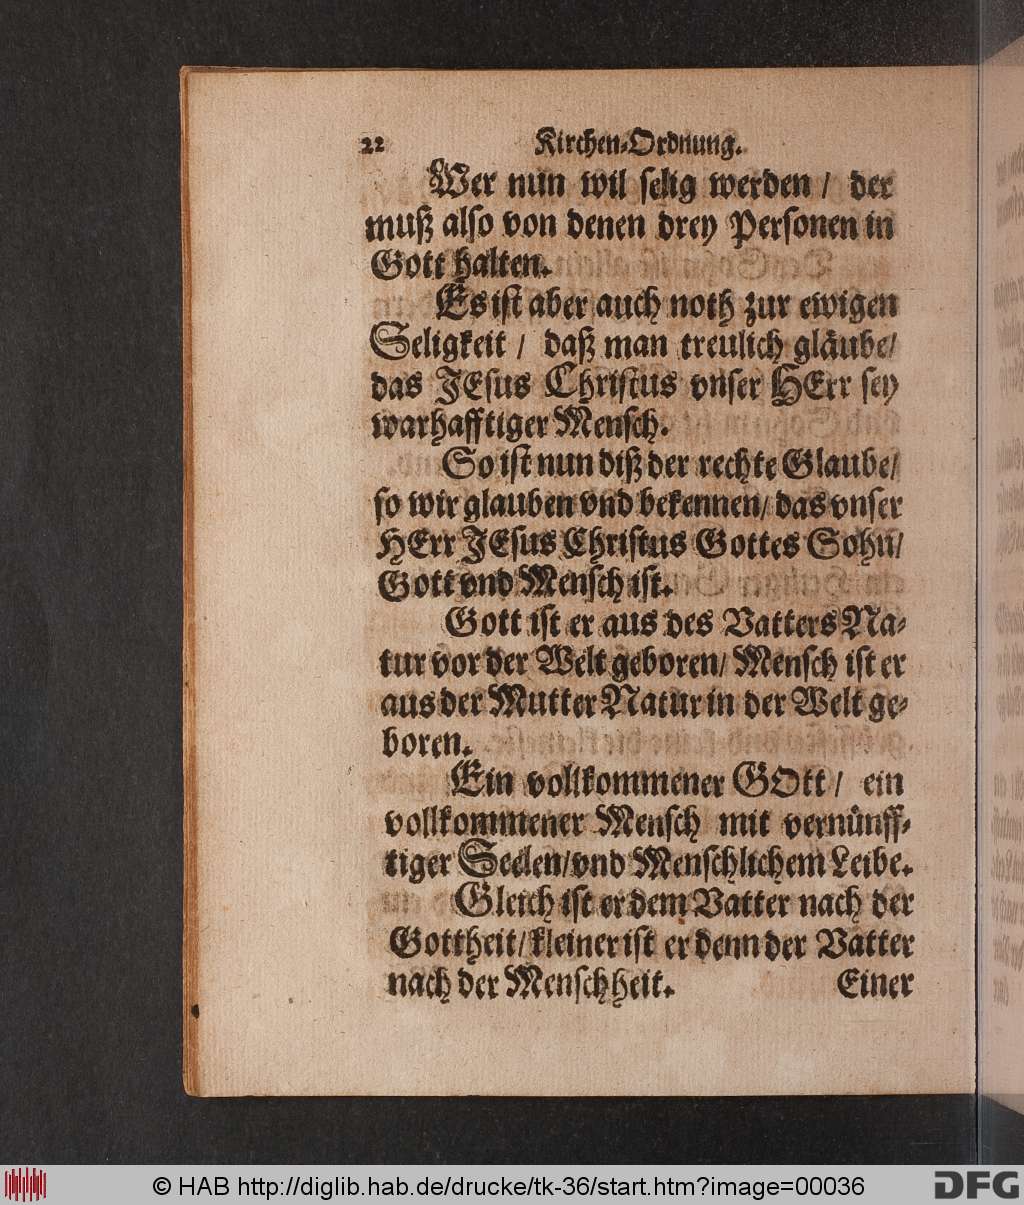 22 Kirchen-Ordnung.
Wer nun wil selig werden / der
muß also von denen drey Personen in
Gott halten.
Es ist aber auch noth zur ewigen
Seligkeit / daß man treulich gläube/
das JEsus Christus vnser HErr sey
warhafftiger Mensch.
So ist nun diß der rechte Glaube/
so wir glauben vnd bekennen/ das vnser
HErr JEsus Christus Gottes Sohn/
Gott vnd Mensch ist.
Gott ist er aus des Vatters Na-
tur vor der Welt geboren/ Mensch ist er
aus der Mutter Natur in der Welt ge-
boren.
Ein vollkommener GOtt / ein
vollkommener Mensch mit vernünff-
tiger Seelen/vnd Menschlichem Leibe.
Gleich ist er dem Vatter nach der
Gottheit/kleiner ist er denn der Vatter
nach der Menschheit. Einer
© HAB http://diglib.hab.de/drucke/tk-36/start.htm?image=00036
DFG